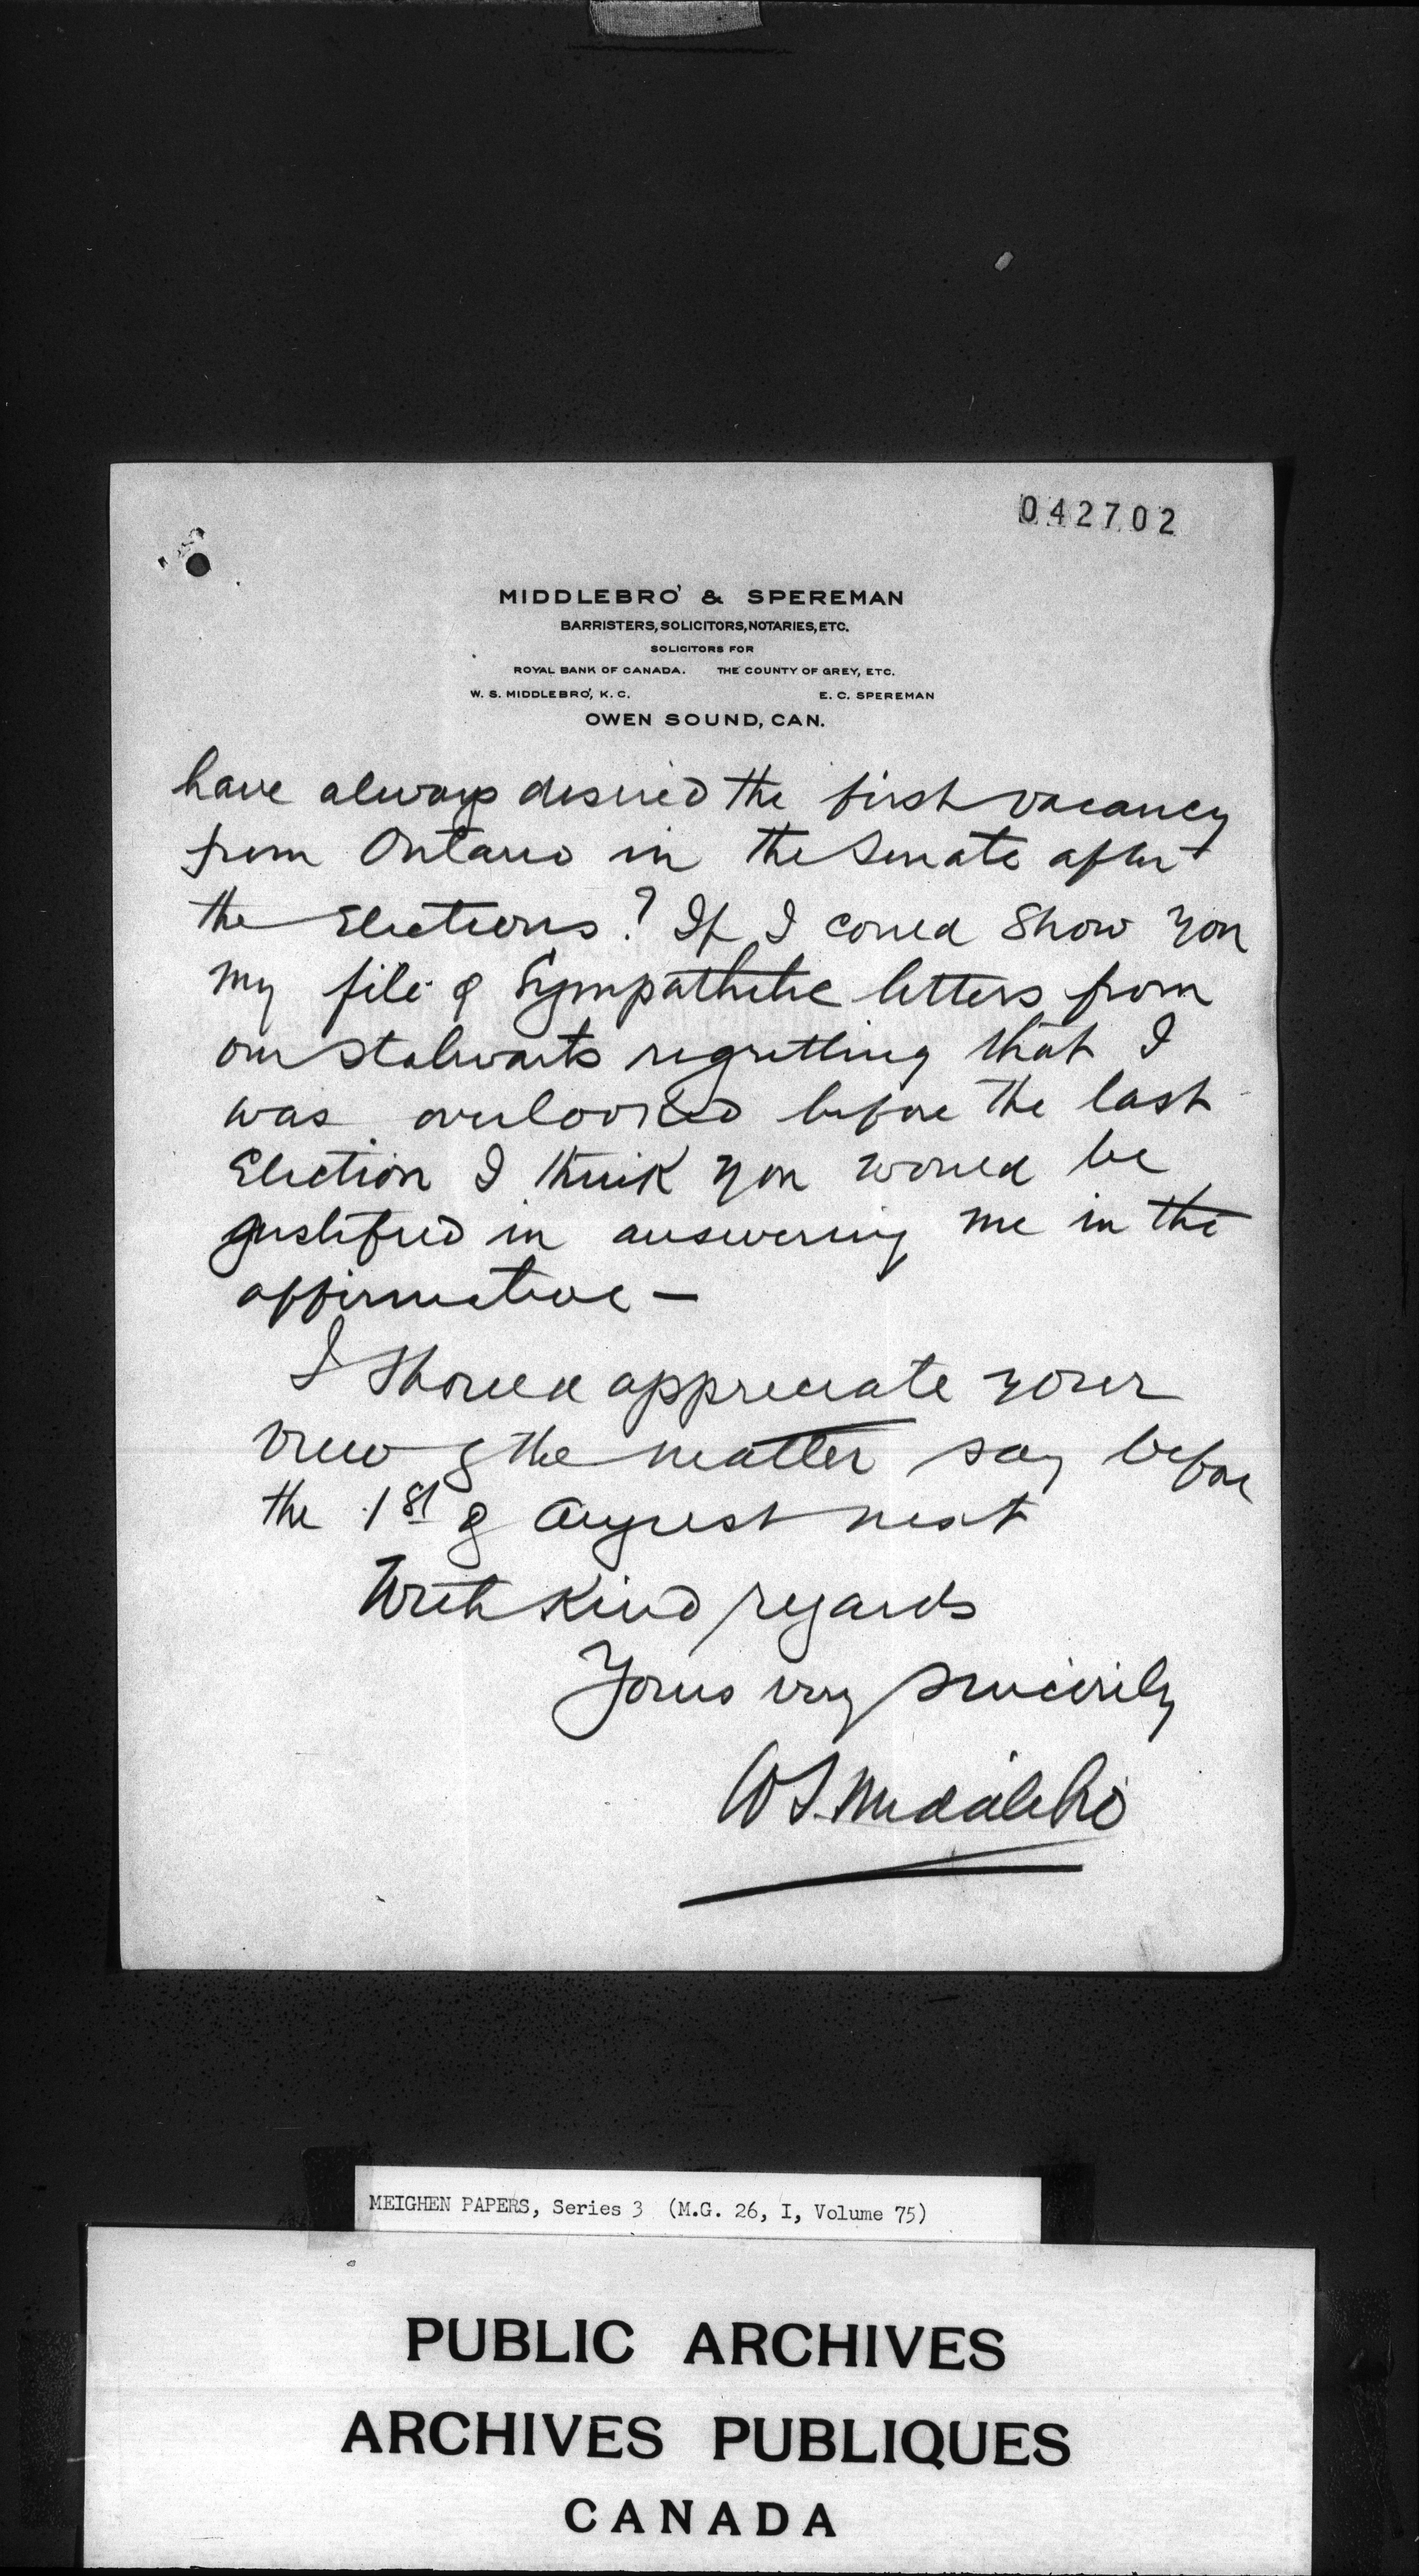 042702
MIDDLEBRO' & SPEREMAN
BARRISTERS, SOLICITORS, NOTARIES, ETC.
SOLICITORS FOR
ROYAL BANK OF CANADA. THE COUNTY OF GREY, ETC.
W. S. MIDDLEBRO', K. C. E. C. SPEREMAN
OWEN SOUND, CAN.
have always desired the first vacancy
from Ontario in the Senate after
the Elections? If I could show you
my file of Sympathetic letters from
our stalwarts regretting that I
was overlooked before the last
Election I think you would be
justified in answering me in the
affirmative —
I should appreciate your
view of the matter say before
the 1st of August next
With kind regards
Yours very sincerely
W S. Middlebro'
MEIGHEN PAPERS, Series 3 (M.G. 26, I, Volume 75)
PUBLIC ARCHIVES
ARCHIVES PUBLIQUES
CANADA